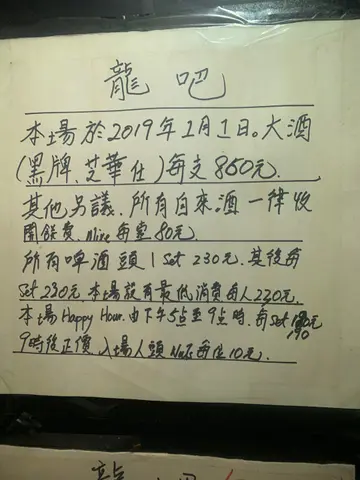 龍吧
本場於2019年1月1日。大酒
(黑牌、芝華仕)每支850元.
其他另議.所有自來酒一律收
開餸費. 每壹80元.
所有啤酒頭1Set 230元.其後每
Set 230元.本場設有最低消費每人230元.
本場Happy Hour.由下午5点至9点時.每Set 190元
9時後正價.入場人頭Nuts每位10元.
龍